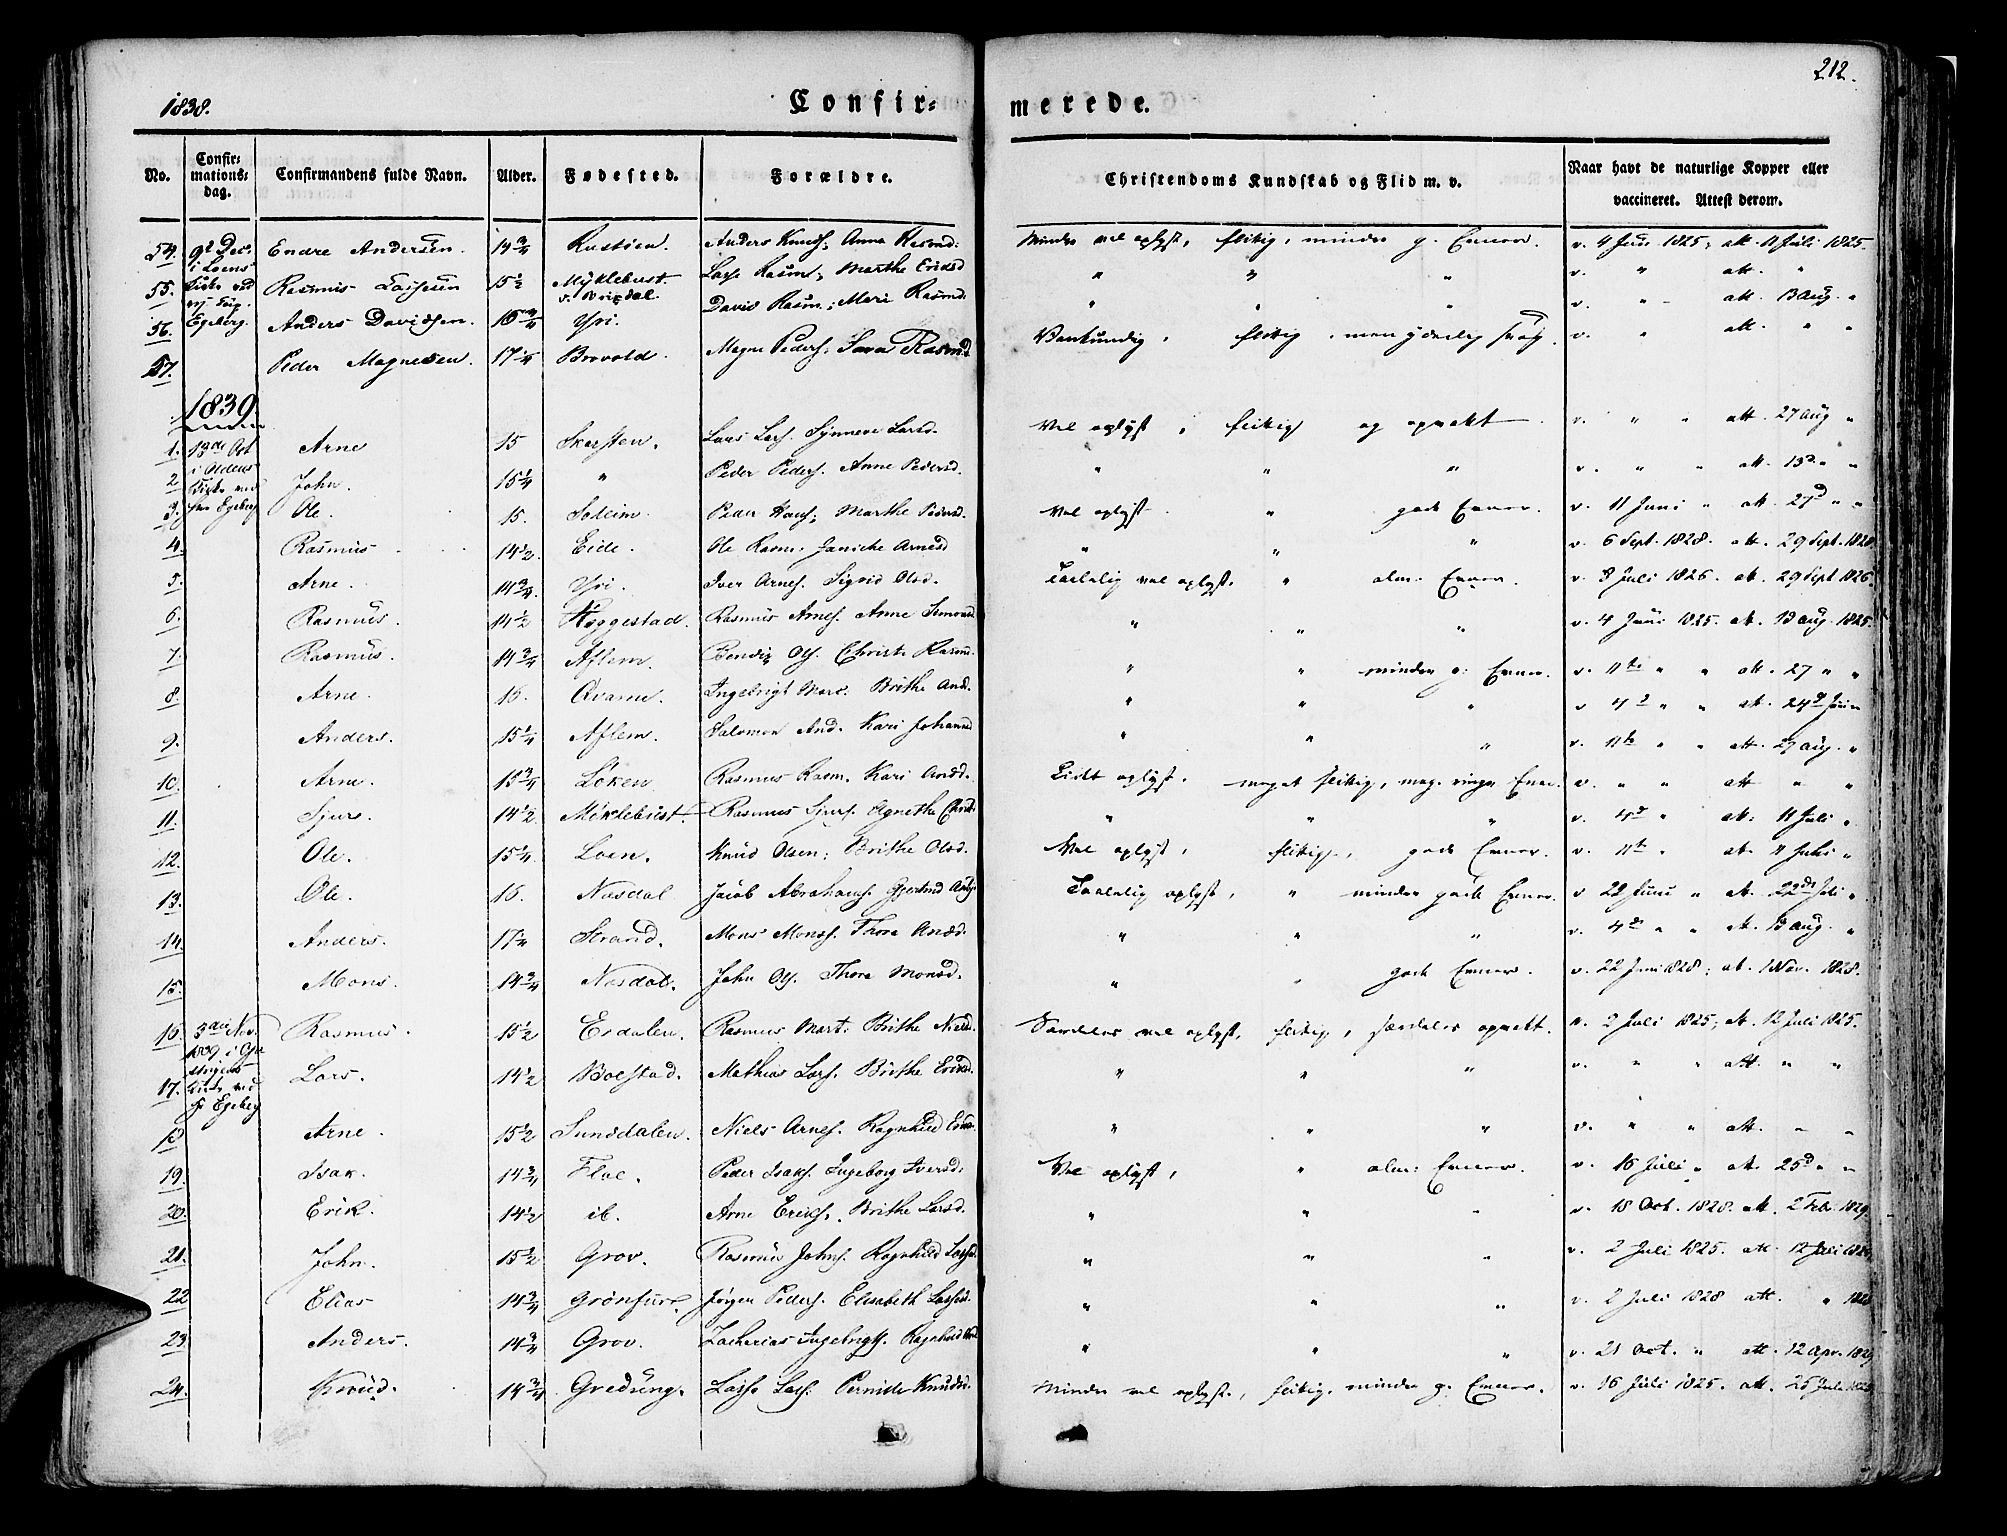 1838.
Confir=
merede.
212.
No.
Confir=
mations=
dag.
Confirmandens fulde Navn.
Alder.
Fødested.
Forældre.
Christendoms Kundskab og Flid m. v.
Naar havt de naturlige Kopper eller
vaccineret. Attest derom.
54. Endre Andersen. 14 3/4 Anders Knuds. Anna Rasmd. Minder vel oplyst, flitig, minder g. Evner. v. 4 Juni 1825, att. 11 Juli 1825.
55. Rasmus Lassesen 15 1/2 Myklebust v. Brixdal. Lasse Rasm. Marthe Eriksd " " " v. " att. "
56. Egeberg. Anders Davidsen. Yri. David Rasm. Mari Rasmd. " " " v. " att. 13 Aug. "
57. Peder Magnesen. 17 1/4 Brovold. Magne Peders. Rasmd flittig, v. " att. " "
1839.
1. 13de Oct Arne 15 Skarsten. Lars Lars. Synneve Larsd. Vel oplyst, flitig og opvakt. v. " " att. 27 Aug "
2. i Oldens Kirke ved John. 15 1/4 " Peder Peders. Anne Pedersd. " " " v. " " att. 13de "
3. Egeberg Ole. 15. Soleim. Peder Hans. Marthe Pedersd. Vel oplyst. " gode Evner. v. 11 Juni " att. 27d " "
4. Rasmus 14 1/2 Eide. Ole Rasm. Janicke Arnesd " " " v. 6 Sept. 1828. att. 29 Sept. 1828
5. Arne. 14 3/4 Yri. Iver Arnes. Sigrid Olsd. Taalelig vel oplyst. " alm. Evner. v. 3 Juli 1826. att. 29 Sept 1826
6. Rasmus. 14 1/2 Heggestad. Rasmus Arnes. Anne Simonsd. " " " v. 4 Juni 1825. att. 13 Aug. 1825.
7. Rasmus. 14 3/4 Aflem. Bendix Ols. Christi Rasm. " " minder g. Evner. v. 11te " " att. 27 " "
8. Arne. 15. Qvame. Ingebrigt Mart. Brithe And. " " " v. 4d " " att. 24d Juni
9. Anders. 15 1/4 Aflem. Salomon And. Kari Johannd " " " v. 11te " " att. 27 Aug. "
10. Arne. 15 3/4 Løken. Rasmus Rasm. Kari Andsd. Lidt oplyst. meget flittig, meg. ringe Evner. v. " " att. " "
11. Sjurs. 14 1/2 Myklebust. Rasmus Sjurs. Agnethe " " " v. 4d " att. 11 Juli "
12. Ole. 15 1/4 Loen. Knud Olsen. Brithe Olsd. Vel oplyst, flitig, gode Evner. v. 11te " att. 11 Juli "
13. Ole. 16. Nesdal. Jacob Abrahams. Gjertrud Taalelig oplyst, " minder gode Evner. v 22 Juni " att. 22de Juli "
14. Anders. Strand. Mons Monss. Thora Andsd. " " " v. 4de " " att. 13 Aug. "
15. Mons. 14 3/4 Nesdal. John Ols. Thora Monsd. " " gode Evner. v. 22 Juni 1828; att. 1 Nov. 1828.
16. 3die Nov. Rasmus. 15 1/2 Erdalen. Rasmus Mart. Brithe Nielsd. Særdeles vel oplyst, flitig, særdeles opvakt. v. 2 Juli 1825; att. 12 Juli 1825.
1839 i
17. Kirke ved Egeberg Lars. 14 1/2 Bolstad. Mathias Lars. Brithe Eriksd. " " " v. " " att. " "
18 Arne. 15 1/2 Sunddalen. Niels Arnes. Ragnhild " " " v. " " att. " "
19. Isak. 14 3/4 Floe. Peder Isaks. Ingeborg Iversd. Vel oplyst, " alm. Evner. v. 16 Juli " att. 25d " "
20. Erik. 14 1/2 ib. Arne Eriks. Brithe Larsd. " " " v. 18 Oct. 1828. att. 2 Feb. 1829.
21. John. 15 1/2 Grov. Rasmus Johns. Ragnhild Lassd. " " " v. 2 Juli 1825. att. 12 Juli
22 Elias 14 3/4 Grønfur. Jørgen Peders. Elisabeth Lassesd. " " " v. 2 Juli 1828 att. "
23. Anders. 14 3/4 Grov. Zacharias Ingebrigts. Ragnhild " " " v. 21 Oct. " att. 12 Apr. 1829
24. Knud. 14 3/4 Gredung. Lasse Lass. Pernille Knudsd. Minder vel oplyst, flitig, minder g. Evner. v. 16 Juli 1825. att. 25 Juli